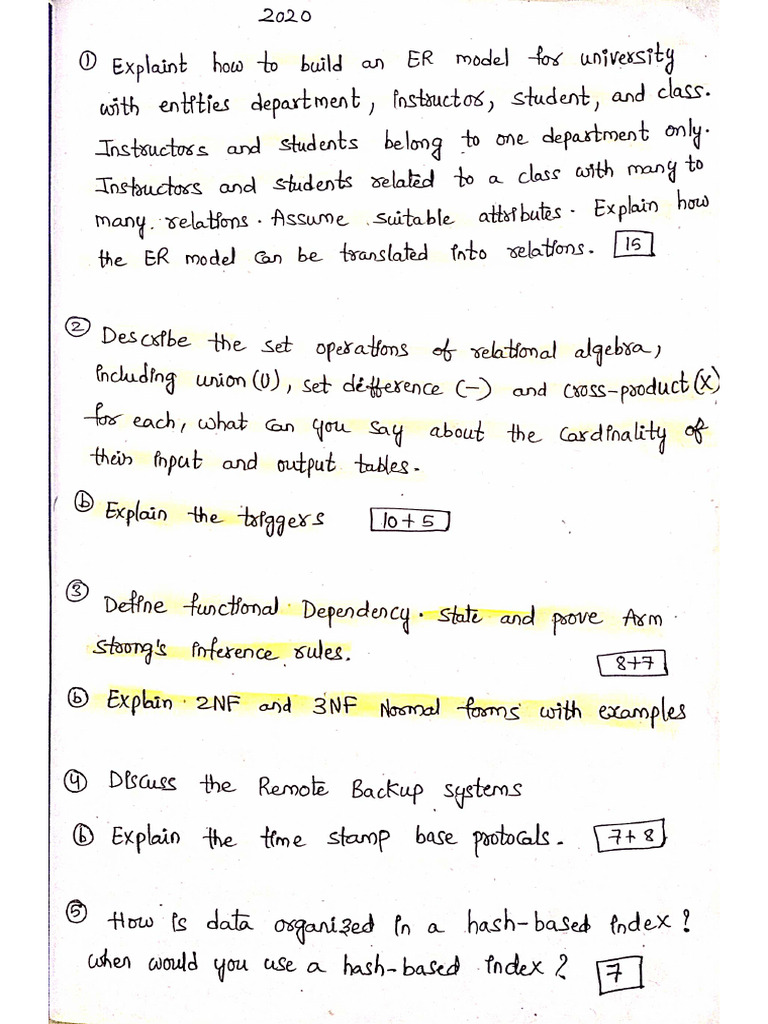 2020
① Explaint how to build an ER model for university
with entities department, instructor, student, and class.
Instructors and students belong to one department only.
Instructors and students related to a class with many to
many. relations. Assume suitable attributes. Explain how
the ER model can be translated into relations. 15
② Describe the set operations of relational algebra,
including union (U), set difference (-) and cross-product (x)
for each, what can you say about the cardinality of
their input and output tables.
ⓑ Explain the triggers 10+5
③ Define functional Dependency. State and prove Arm
strong's inference rules. 8+7
ⓑ Explain 2NF and 3NF Normal forms with examples
④ Discuss the Remote Backup systems
ⓑ Explain the time stamp base protocals. 7+8
⑤ How is data organized in a hash-based index?
when would you use a hash-based index? 7